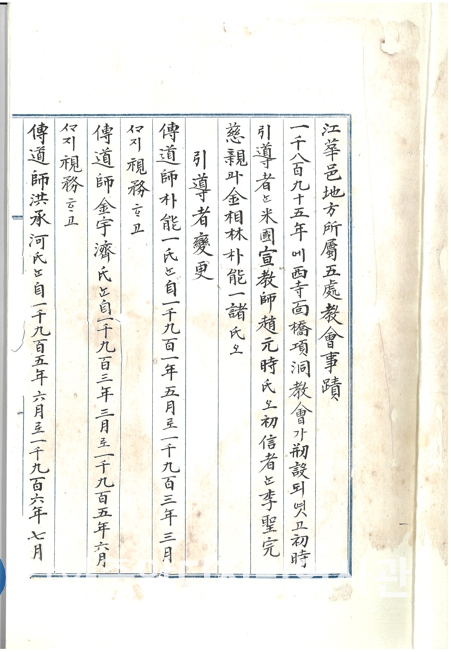 江華邑地方所屬五處敎會事蹟
一千八百九十五年에西寺面橋項洞敎會가刱設되엿고初時
引導者는米國宣敎師趙元時氏오初信者는李聖完
慈親과金相林朴能一諸氏오
引導者變更
傳道師朴能一氏는自一千九百一年五月로一千九百三年三月
ᄭᆞ지視務ᄒᆞ고
傳道師金宇濟氏는自一千九百三年三月로一千九百五年六月
ᄭᆞ지視務ᄒᆞ고
傳道師洪承河氏는自一千九百五年六月로一千九百六年七月